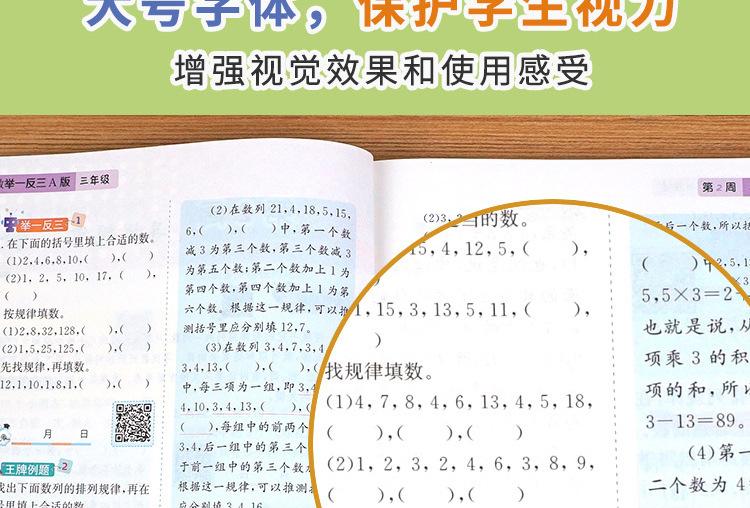 大号字体，保护学生视力
增强视觉效果和使用感受
举一反三A版 三年级
举一反三 1
在下面的括号里填上合适的数。
(1)2,4,6,8,10,( ),( )
(2)1, 2, 5, 10, 17, ( ),
( )
按规律填数。
(1)2,8,32,128,( ),( )
(2)1,5,25,125,( ),( )
先找规律,再填数。
12,1,10,1,8,1,( ),( )
月 日
王牌例题 2
找出下面数列的排列规律,再在
(2)在数列 21,4,18,5,15,
6,( ),( )中,第一个数
减3为第三个数,第三个数减3
为第五个数;第二个数加上1为
第四个数,第四个数加上1为第
六个数。根据这一规律,可以推
测括号里应分别填12,7。
(3)在数列 3,4,7,3,4
3,4,13,( ),( )
中,每三项为一组,即3,4
4,10,3,4,13,( ),(
),每组中的前两个
3,4,后一组中的第三个
于前一组中的第三个数
根据这一规律,可以推测
应分别填 3,4,16
第2周
(2)3,
当的数。
15, 4, 12, 5, ( ),
1, 15, 3, 13, 5, 11, ( ),
)
找规律填数。
(1)4, 7, 8, 4, 6, 13, 4, 5, 18,
( ),( ),( )
(2)1, 2, 3, 2, 4, 6, 3, 8, 9,
( ),( ),( )
后一个数,所以括
( )中
2,5,13
5,5×3=2
也就是说,从
项乘 3 的积
项的和,所以
3-13=89。
(4)第一
二个数为 4